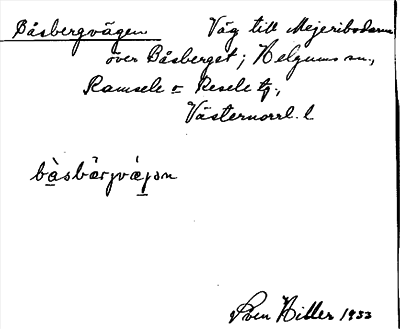 Båsbergvägen Väg till Mejeribodarna
över Båsberget; Helgums sn.,
Ramsele o Resele tg.,
Västernorrl. l
bàsbärjvä̀jən
Sven Hiller 1933